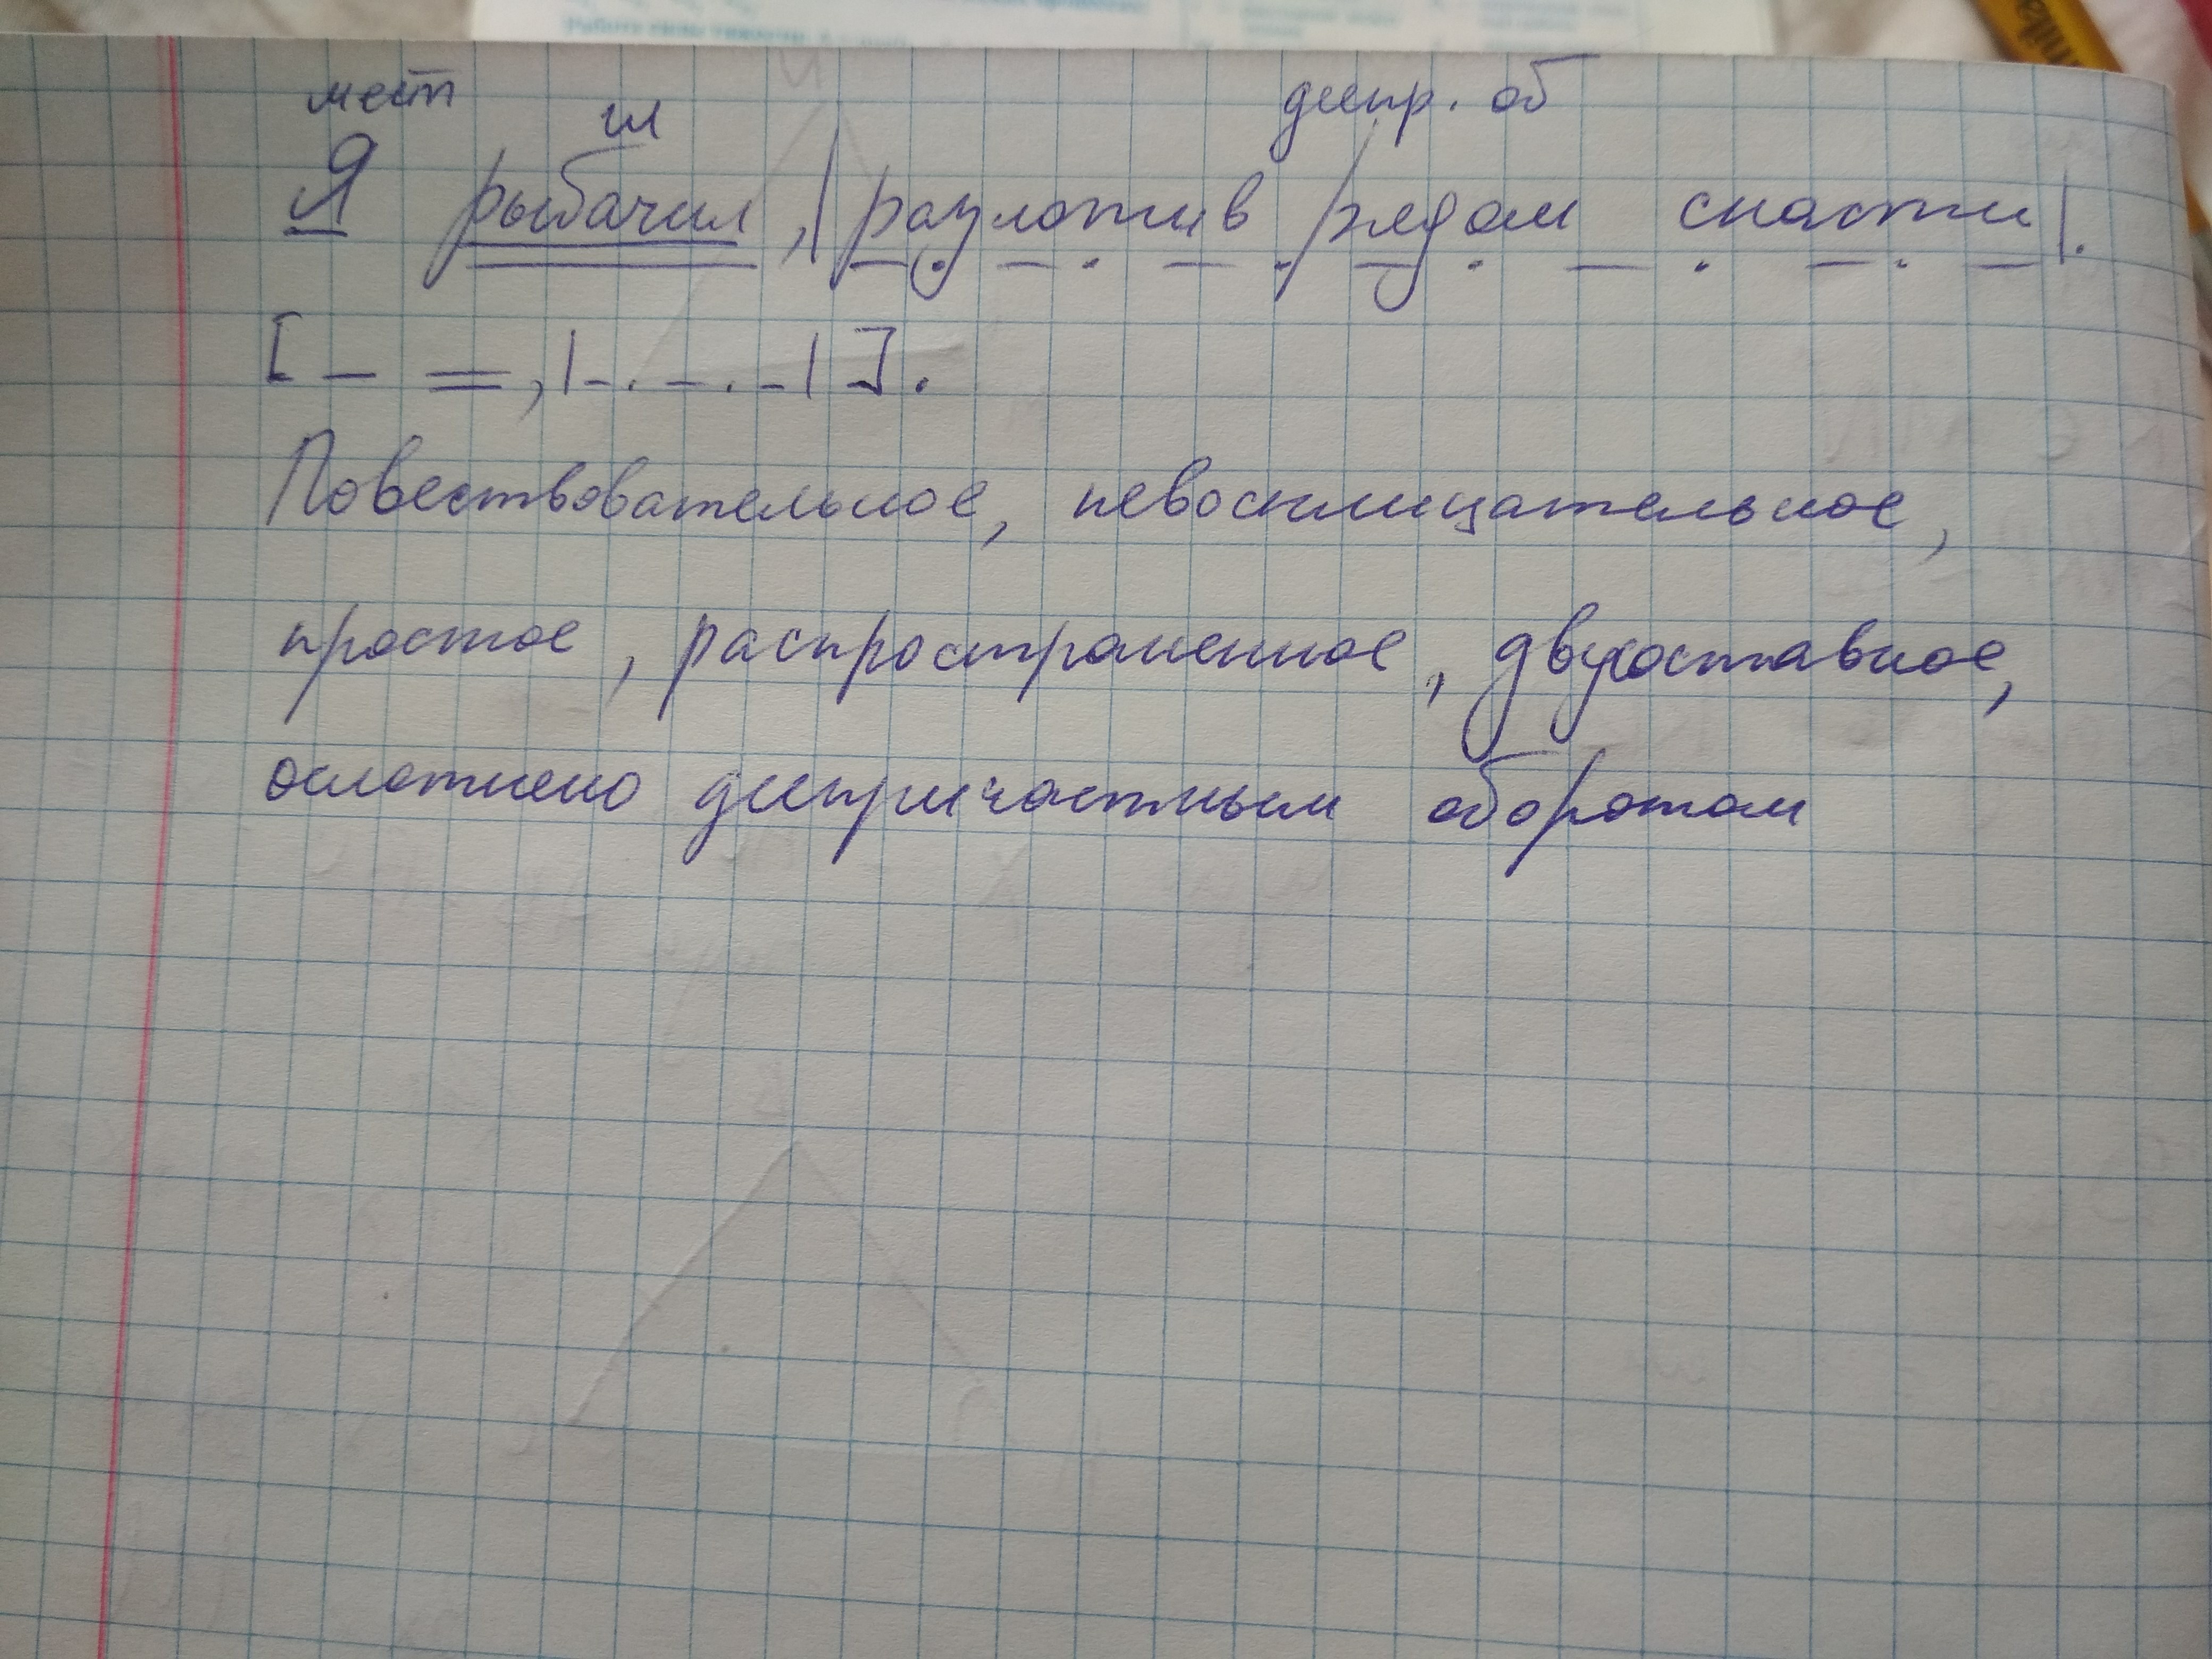 мест гл деепр. об
Я рыбачил, |разложив рядом снасти|.
[ – =, |–.–.–| ].
Повествовательное, невосклицательное,
простое, распространенное, двусоставное,
осложнено деепричастным оборотом